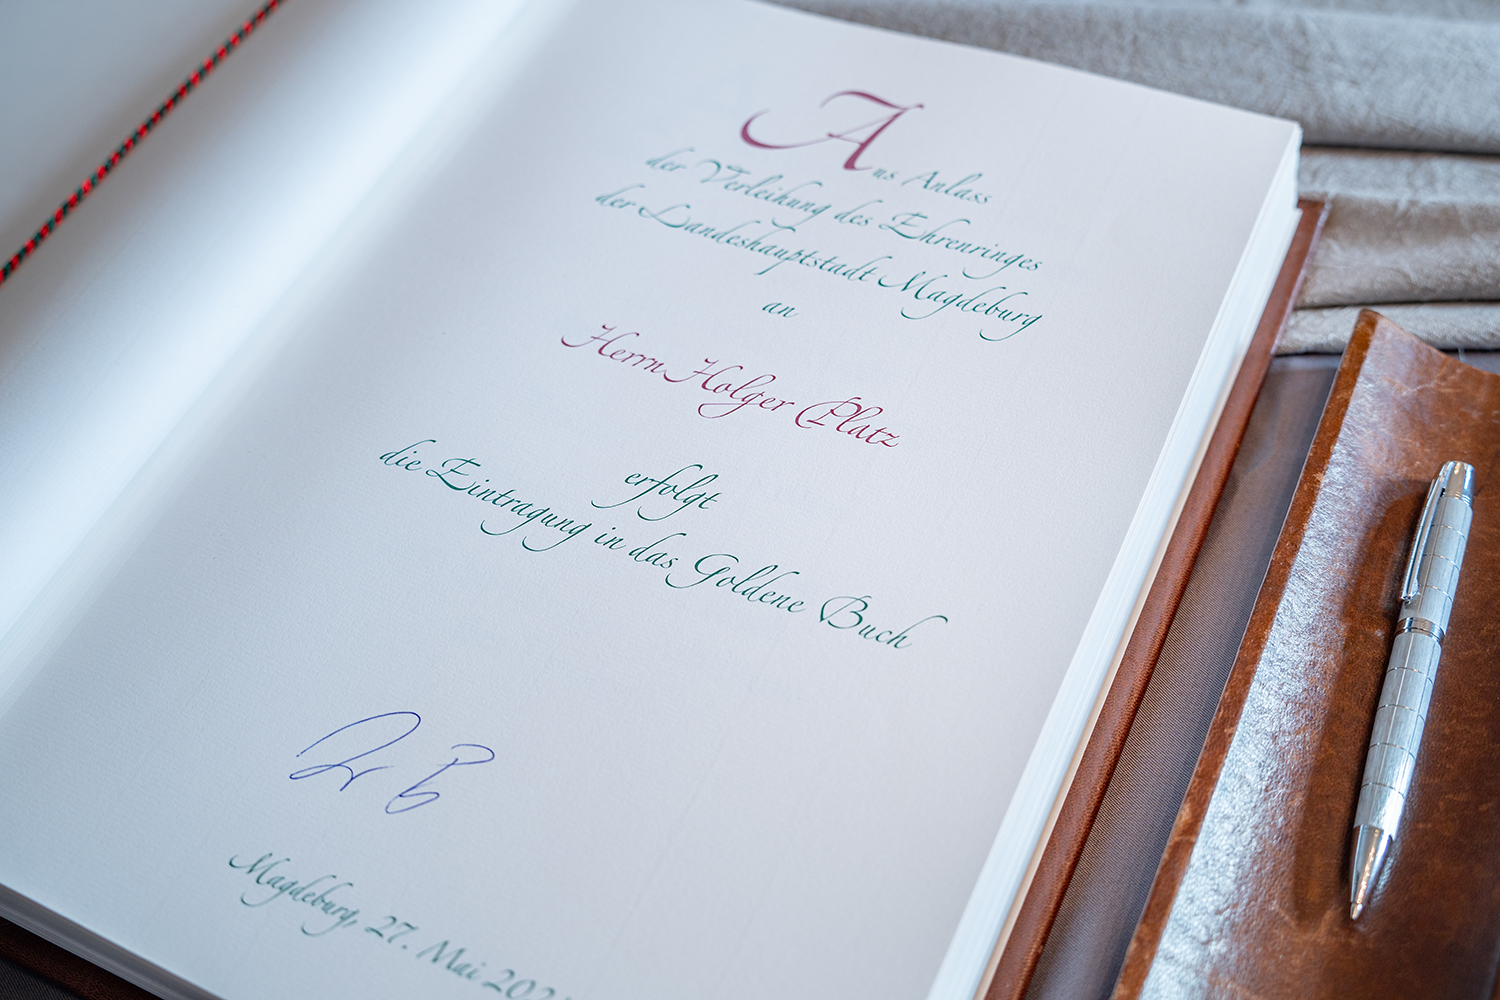 Aus Anlass
der Verleihung des Ehrenringes
der Landeshauptstadt Magdeburg
an
Herrn Holger Platz
erfolgt
die Eintragung in das Goldene Buch
Magdeburg, 27. Mai